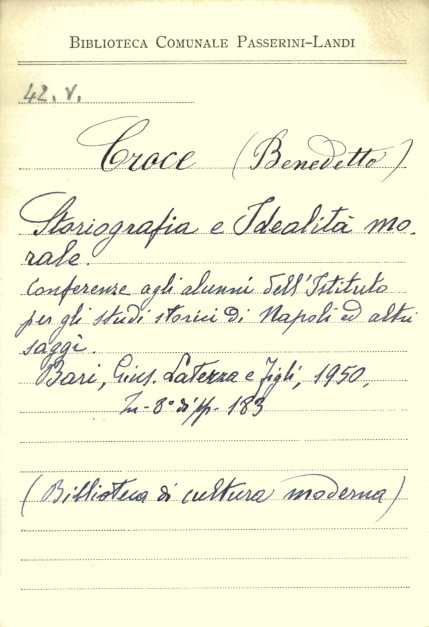 BIBLIOTECA COMUNALE PASSERINI-LANDI
42. V.
Croce (Benedetto)
Storiografia e Idealità mo-
rale.
Conferenze agli alunni dell'Istituto
per gli studi storici di Napoli ed altri
saggi.
Bari, Gius. Laterza e Figli, 1950,
In-8° di pp. 183
(Biblioteca di cultura moderna)